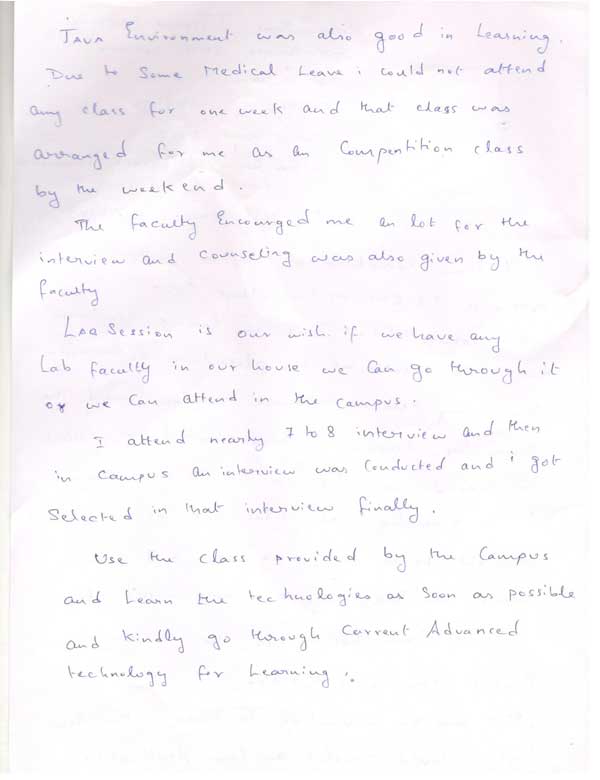 Java Environment was also good in Learning.
Due to Some Medical Leave i could not attend
any class for one week and that class was
arranged for me as an Compentition class
by the weekend.
The faculty Encourged me an lot for the
interview and counseling was also given by the
faculty
Lab Session is our wish if we have any
Lab faculty in our house we can go through it
or we can attend in the campus.
I attend nearly 7 to 8 interview and then
in campus an interview was conducted and i got
Selected in that interview finally.
Use the class provided by the Campus
and Learn the technologies as soon as possible
and kindly go through Current Advanced
technology for Learning.